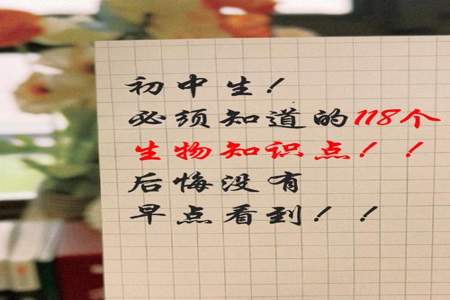 初中生！
必须知道的118个
生物知识点！！
后悔没有
早点看到！！